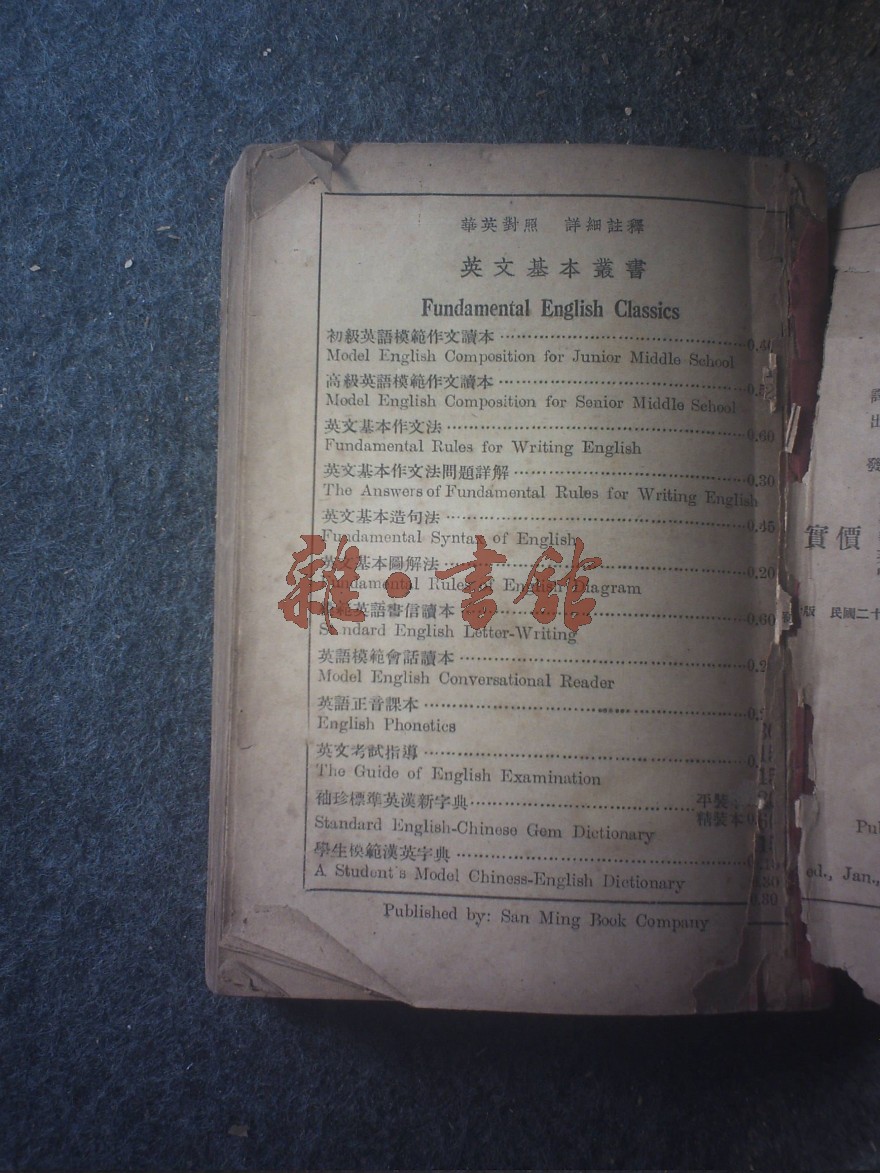 華英對照 詳細註釋
英文基本叢書
Fundamental English Classics
初級英語模範作文讀本 0.40
Model English Composition for Junior Middle School
高級英語模範作文讀本
Model English Composition for Senior Middle School
英文基本作文法 0.60
Fundamental Rules for Writing English
英文基本作文法問題詳解 0.30
The Answers of Fundamental Rules for Writing English
英文基本造句法 0.45
Fundamental Syntax of English
英文基本圖解法 0.20
Fundamental Rules of English Diagram
英語書信讀本 0.60
Standard English Letter-Writing
英語模範會話讀本
Model English Conversational Reader
英語正音課本
English Phonetics
英文考試指導
The Guide of English Examination
袖珍標準英漢新字典 平裝
精裝本
Standard English-Chinese Gem Dictionary
學生模範漢英字典
A Student's Model Chiness-English Dictionary
Published by: San Ming Book Company
雜·書館
出
發
實價
版 民國二十
ed., Jan.,